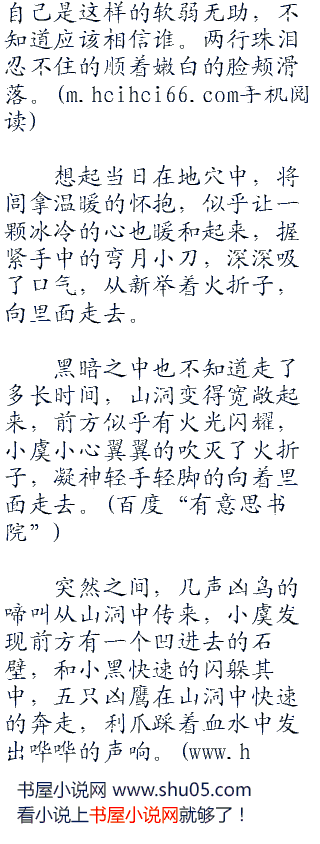 自己是这样的软弱无助，不
知道应该相信谁。两行珠泪
忍不住的顺着嫩白的脸颊滑
落。(m.hcihci66.com手机阅
读)
想起当日在地穴中，将
闾拿温暖的怀抱，似乎让一
颗冰冷的心也暖和起来，握
紧手中的弯月小刀，深深吸
了口气，从新举着火折子，
向里面走去。
黑暗之中也不知道走了
多长时间，山洞变得宽敞起
来，前方似乎有火光闪耀，
小虞小心翼翼的吹灭了火折
子，凝神轻手轻脚的向着里
面走去。(百度“有意思书
院”)
突然之间，几声凶鸟的
啼叫从山洞中传来，小虞发
现前方有一个凹进去的石
壁，和小黑快速的闪躲其
中，五只凶鹰在山洞中快速
的奔走，利爪踩着血水中发
出哗哗的声响。(www.h
书屋小说网 www.shu05.com
看小说上书屋小说网就够了！